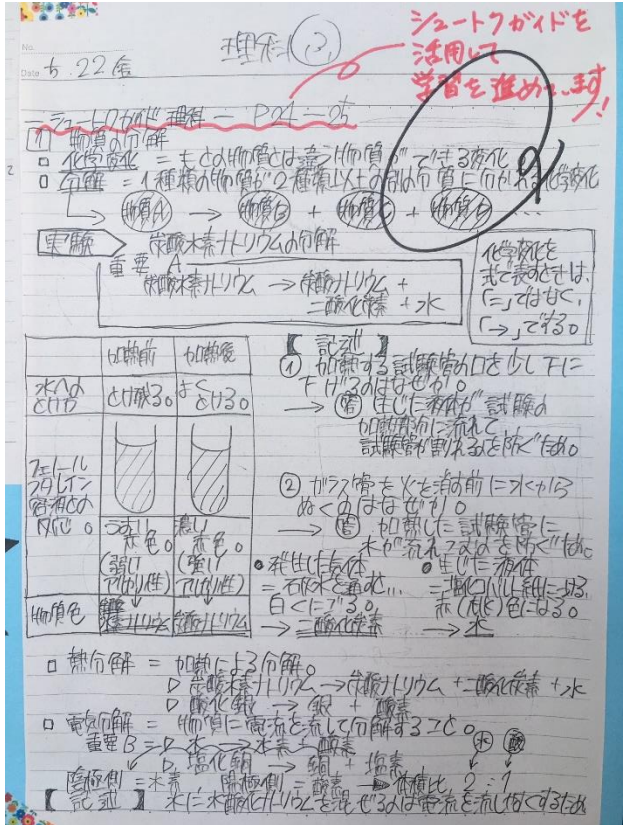 No.
Date 5.22 金
理科②
シュートクガイドを
活用して
学習を進めています!
ーシュートクガイド 理科ー P24〜25
1 物質の分解
□ 化学変化 = もとの物質とは違う物質ができる変化
□ 分解 = 1種類の物質が2種類以上の別の物質に分かれる化学変化
物質A → 物質B + 物質C + 物質D …
実験 炭酸水素ナトリウムの分解
重要 A
炭酸水素ナトリウム → 炭酸ナトリウム +
二酸化炭素 + 水
化学変化を
式で表すときは、
「=」ではなく、
「→」でする。
加熱前 加熱後
水への
とけ方 とけ残る。 よくとける。
フェノール
フタレイン
溶液との
反応。 うすい赤色。(弱いアルカリ性) 濃い赤色。(強いアルカリ性)
物質色 炭酸水素ナトリウム 炭酸ナトリウム
【記述】
① 加熱する試験管の口を少し下に
下げるのはなぜか。
→ 答 生じた液体が試験の
加熱部分に流れて
試験管が割れるのを防ぐため。
② ガラス管を火を消す前に水から
ぬくのはなぜか。
→ 答 加熱した試験管に
水が流れこむのを防ぐため
●発生した気体
=石灰水を通すと…
白くにごる。
→ 二酸化炭素
●生じた液体
=塩化コバルト紙につける。
赤(桃)色になる。
→ 水
□ 熱分解 = 加熱による分解。
▷ 炭酸水素ナトリウム → 炭酸ナトリウム + 二酸化炭素 + 水
▷ 酸化銀 → 銀 + 酸素
□ 電気分解 = 物質に電流を流して分解すること。
重要 B = ▷ 水 → 水素 + 酸素
▷ 塩化銅 → 銅 + 塩素
水 酸
陰極側 = 水素、陽極側 = 酸素 → 体積比 2:1
【記述】 水に水酸化ナトリウムを混ぜるのは電流を流しやすくするため